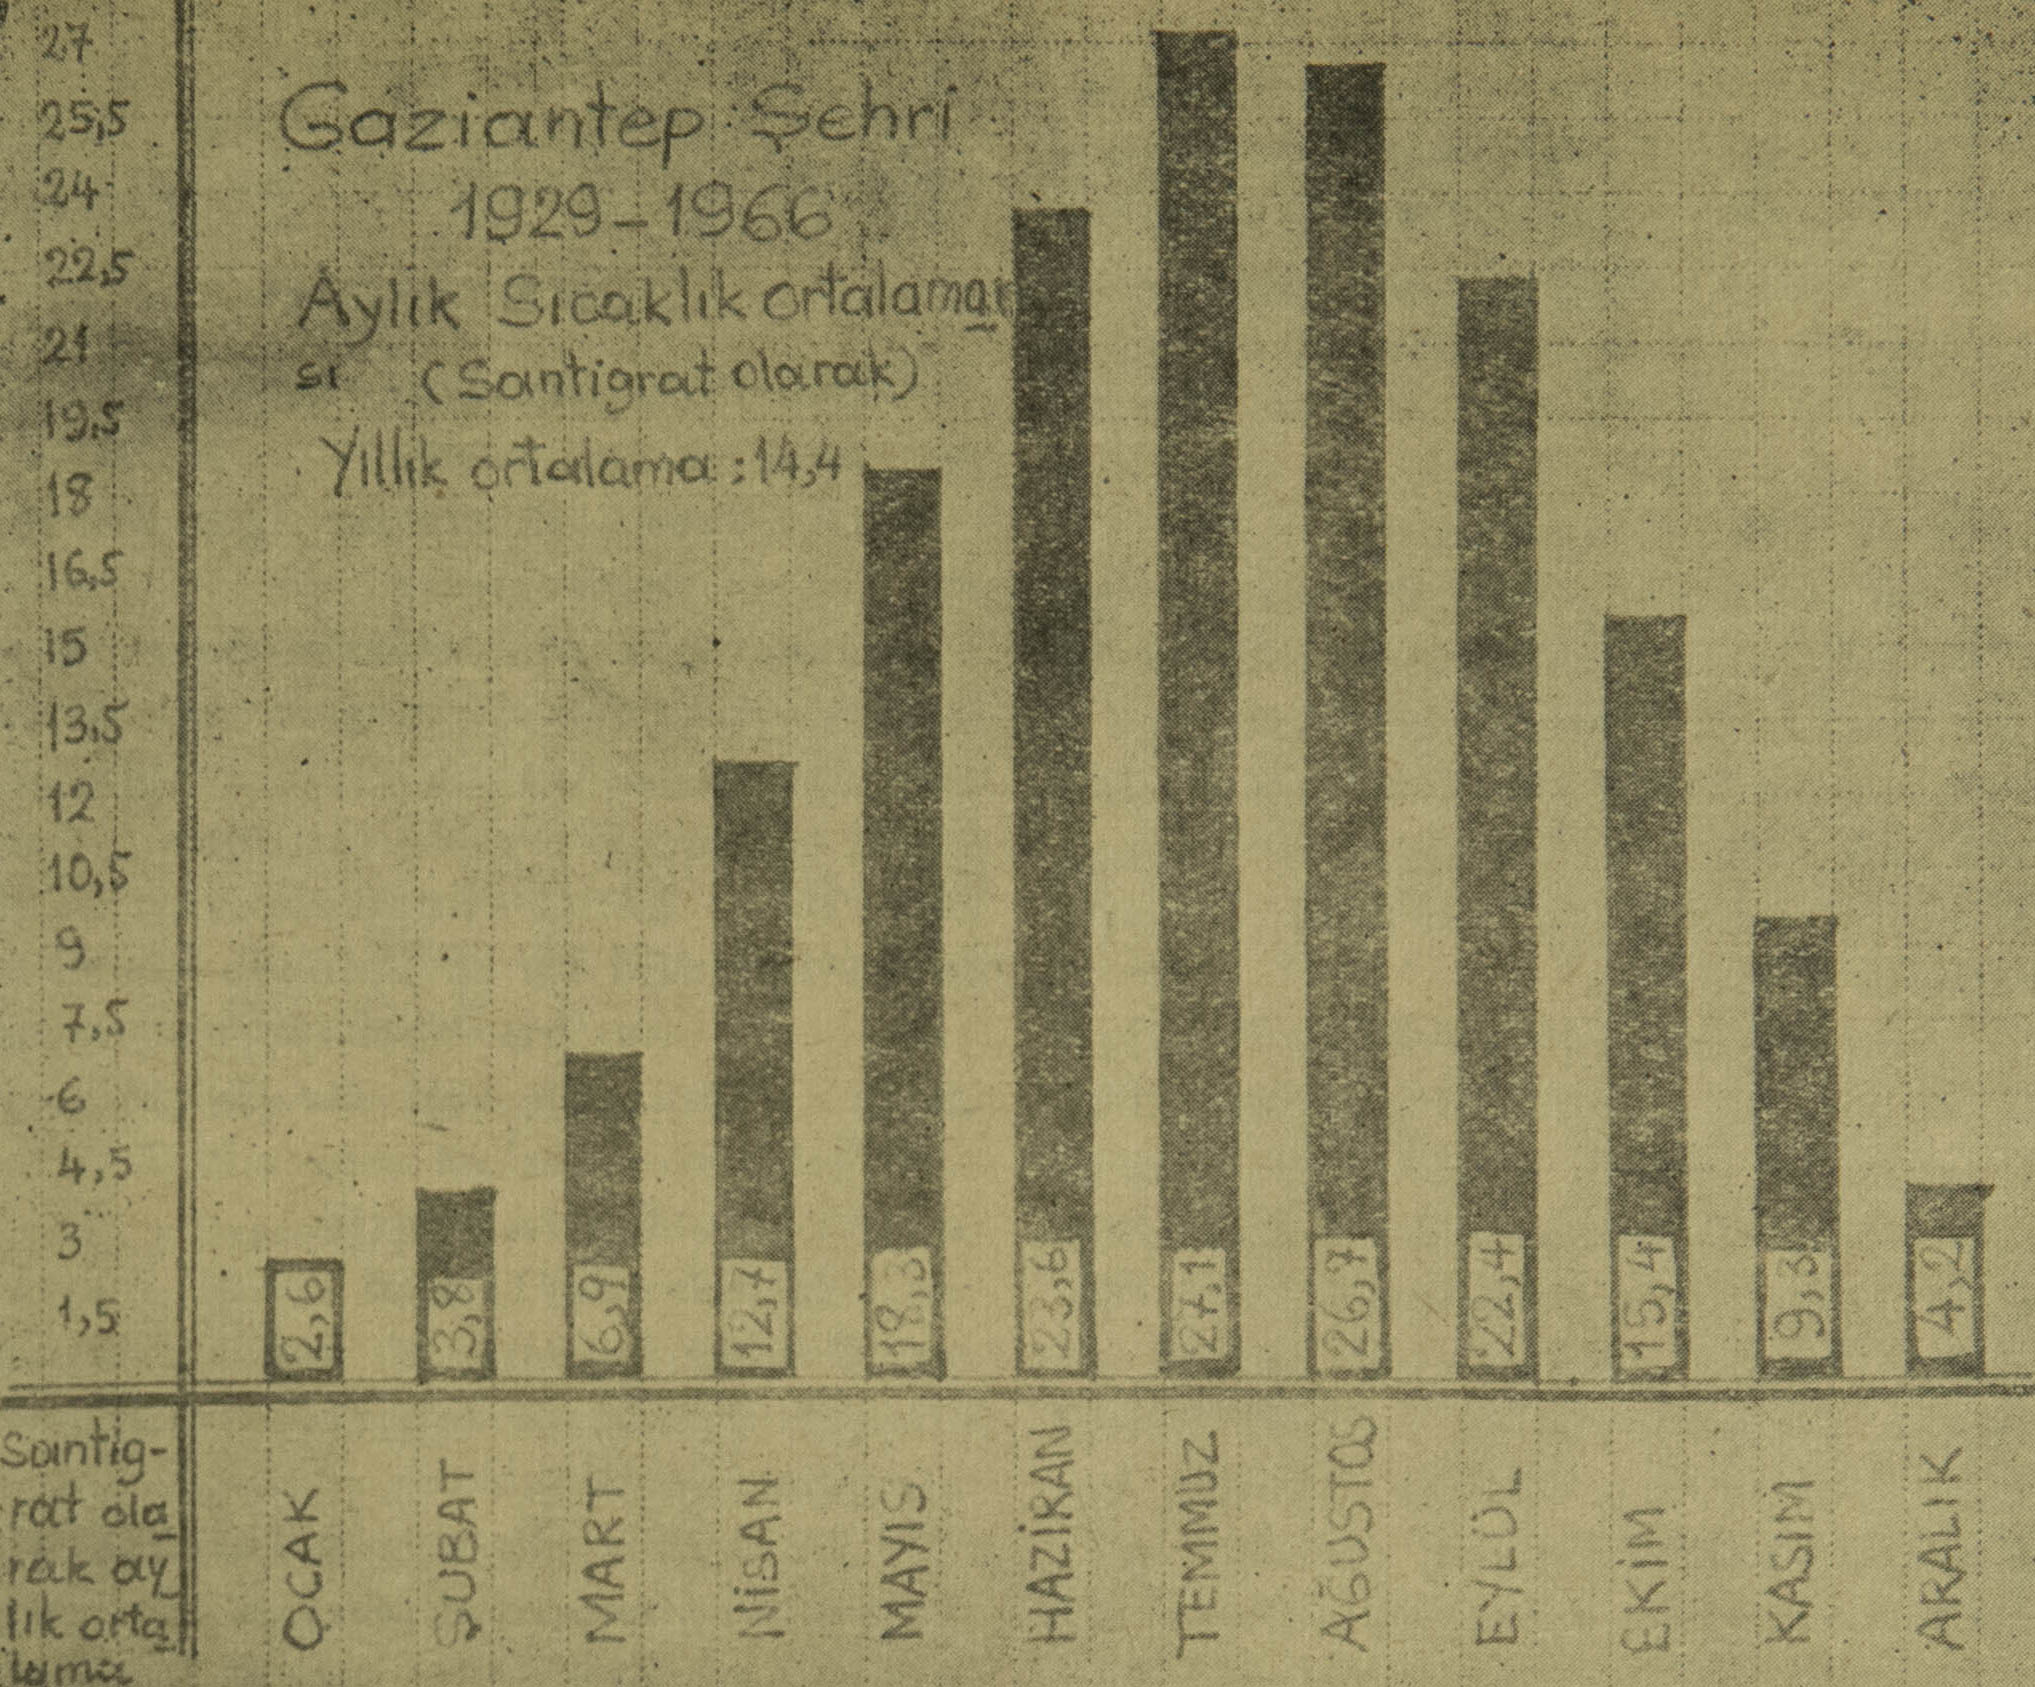 27
25,5
24
22,5
21
19,5
18
16,5
15
13,5
12
10,5
9
7,5
6
4,5
3
1,5
Gaziantep Şehri
1929-1966
Aylık Sıcaklık ortalama
sı (Santigrat olarak)
Yıllık ortalama : 14,4
2,6
3,8
6,9
12,7
18,3
23,6
27,1
26,7
22,4
15,4
9,3
4,2
Santig-
rat ola
rak ay
lık orta
lama
OCAK
ŞUBAT
MART
NİSAN
MAYIS
HAZİRAN
TEMMUZ
AĞUSTOS
EYLÜL
EKİM
KASIM
ARALIK